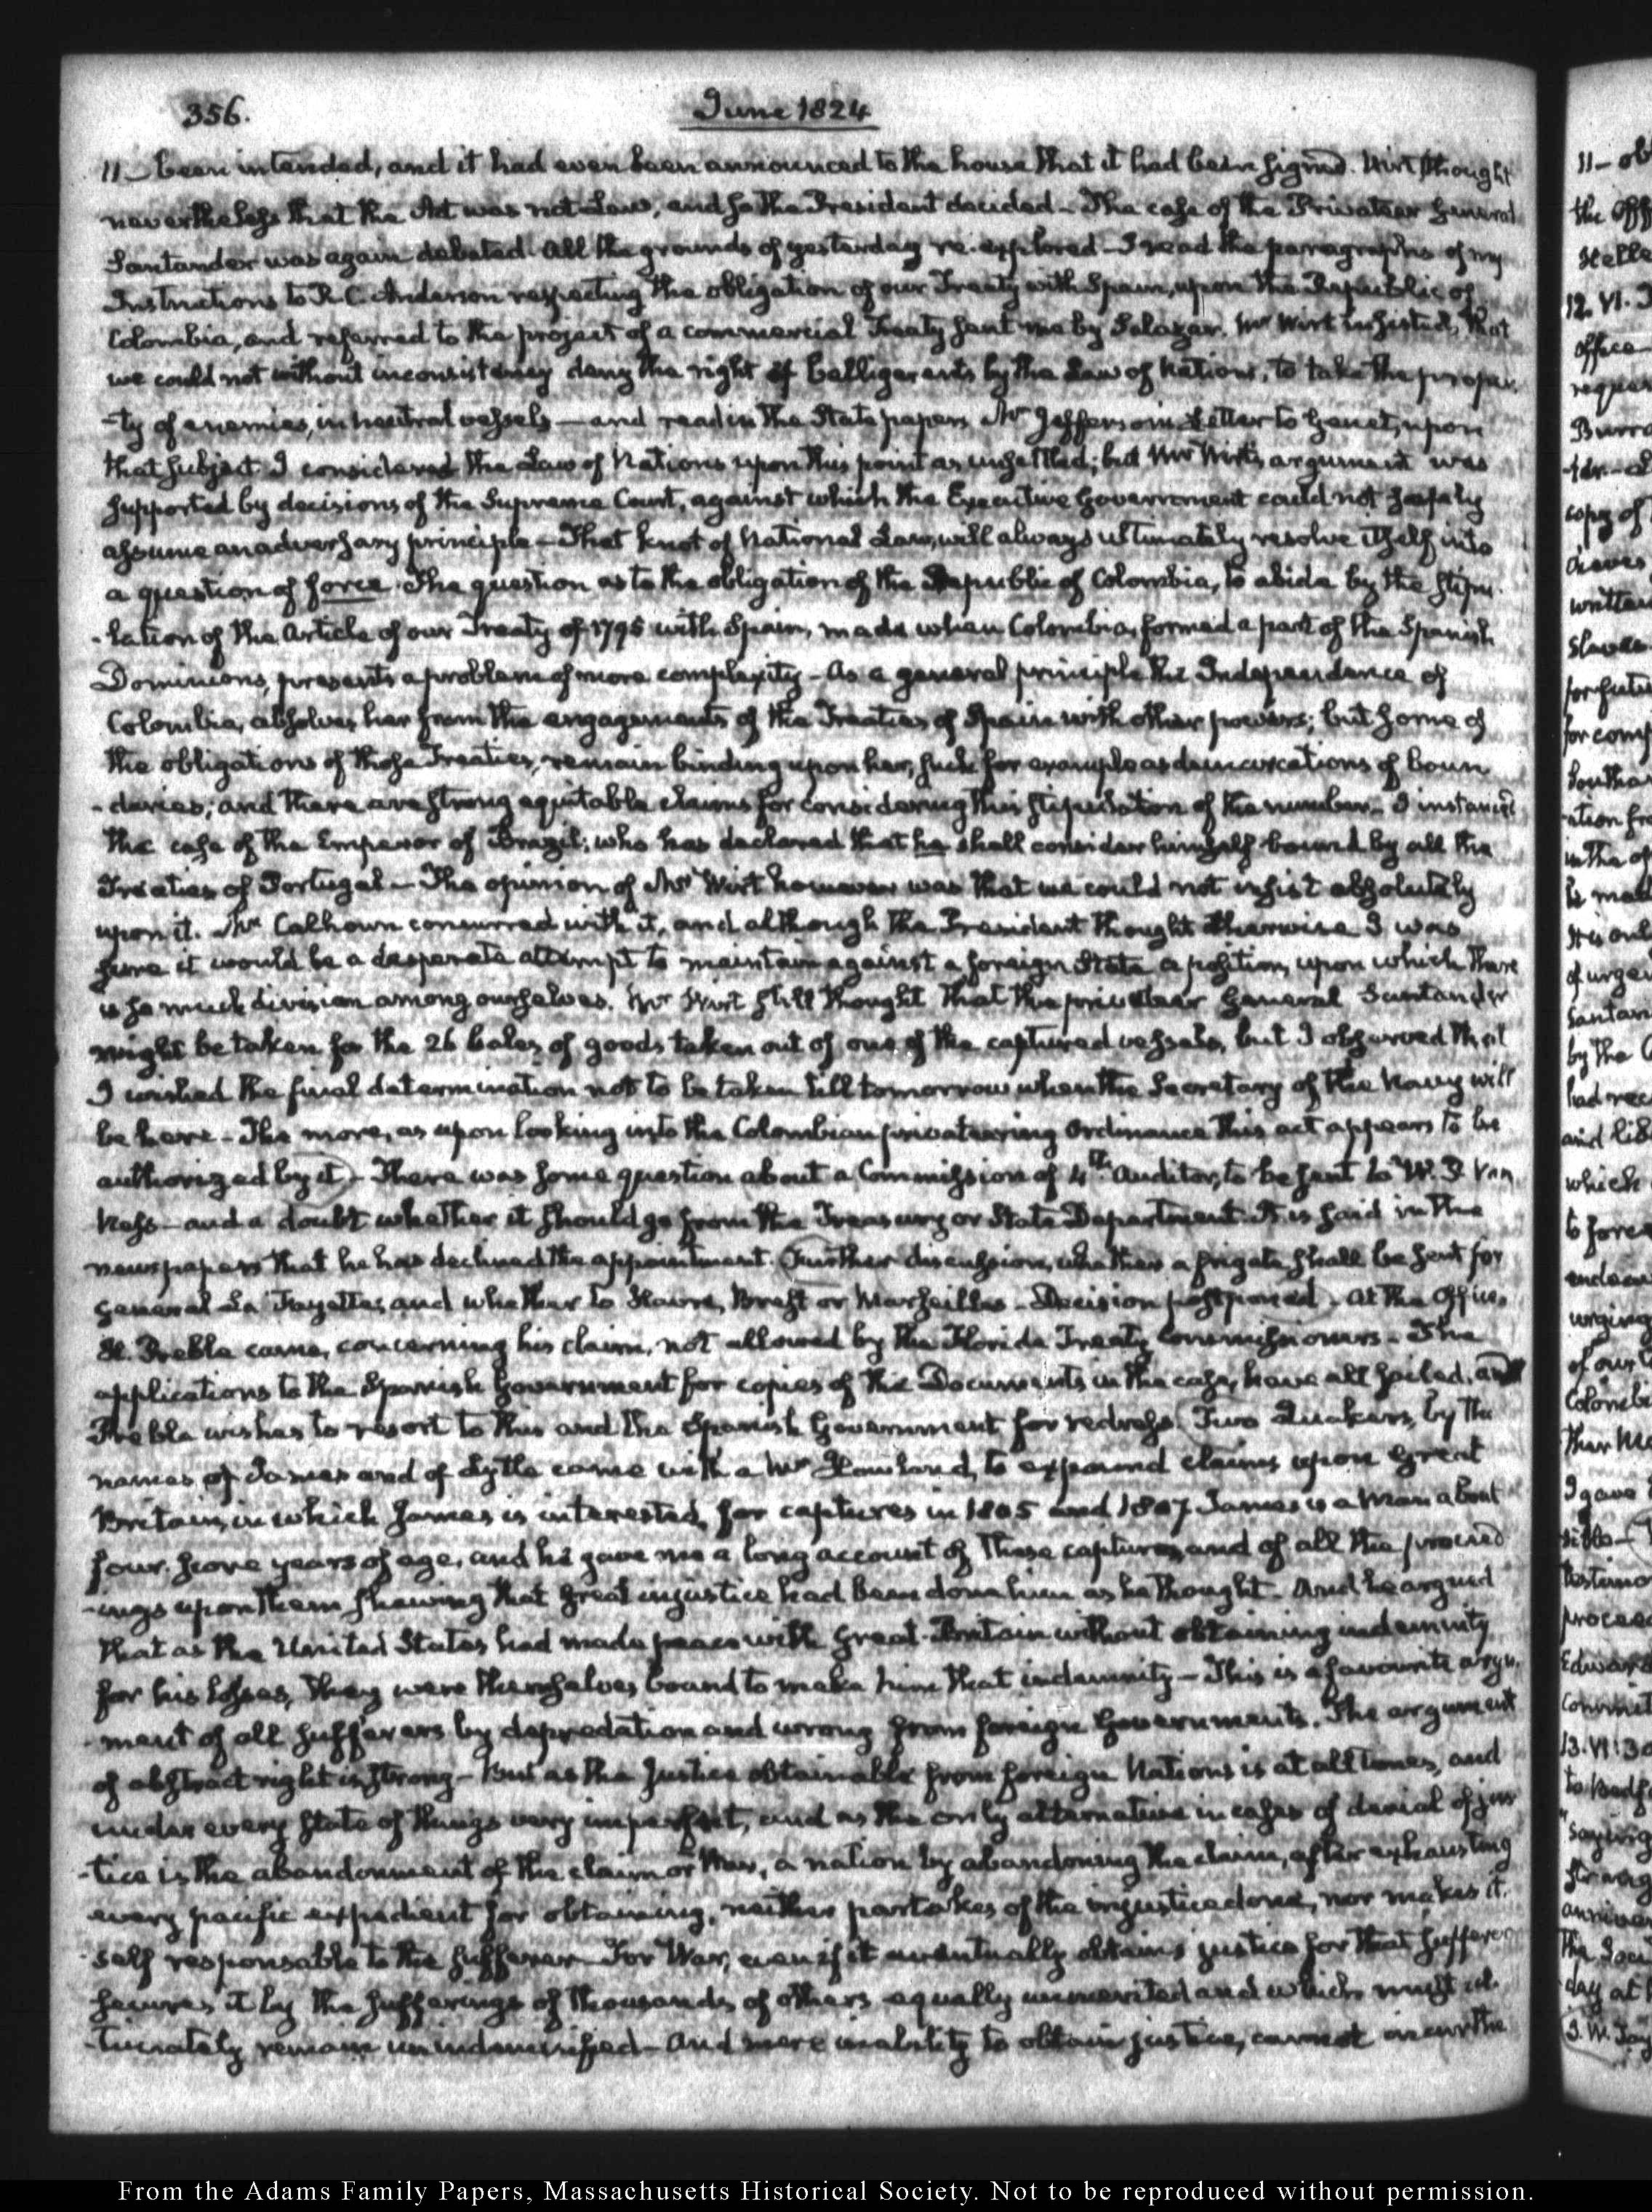 356.
June 1824
11 – been intended, and it had even been announced to the house that it had been signed. Wirt thought
nevertheless that the Act was not Law, and so the President decided – The case of the Privateer General
Santander was again debated. All the grounds of yesterday re-explored – I read the paragraphs of my
Instructions to R. C. Anderson respecting the obligation of our Treaty with Spain, upon the Republic of
Colombia, and referred to the project of a commercial Treaty sent me by Salazar. Mr Wirt insisted, that
we could not without inconsistency deny the right of belligerents by the Law of Nations, to take the proper-
-ty of enemies, in neutral vessels – and read in the State papers Mr Jefferson's Letter to Genet, upon
that subject. I considered the Law of Nations upon this point as unsettled; but Mr Wirt's argument was
supported by decisions of the Supreme Court, against which the Executive Government could not safely
assume an adversary principle – That knot of National Law, will always ultimately resolve itself into
a question of force. The question as to the obligation of the Republic of Colombia, to abide by the stipu-
-lation of the Article of our Treaty of 1795 with Spain, made when Colombia formed a part of the Spanish
Dominions, presents a problem of more complexity – As a general principle the Independence of
Colombia, absolves her from the engagements of the Treaties of Spain with other powers; but some of
the obligations of those Treaties, remain binding upon her, such for example as demarcations of boun
-daries; and there are strong equitable claims for considering this stipulation of the number – I instanced
the case of the Emperor of Brazil; who has declared that he shall consider himself bound by all the
Treaties of Portugal – The opinion of Mr Wirt however was that we could not insist absolutely
upon it. Mr Calhoun concurred with it, and although the President thought otherwise I was
sure it would be a desperate attempt to maintain against a foreign State a position, upon which there
is so much division among ourselves. Mr Wirt still thought that the privateer General Santander
might be taken for the 26 bales of goods taken out of one of the captured vessels, but I observed that
I wished the final determination not to be taken till tomorrow when the Secretary of the Navy will
be here – The more, as upon looking into the Colombian privateering Ordinance this act appears to be
authorized by it – There was some question about a Commission of 4th. Auditor, to be sent to W. P. Van
Ness – and a doubt whether it should go from the Treasury or State Department. It is said in the
newspapers that he has declined the appointment. Further discussion, whether a frigate shall be sent for
General La Fayette, and whether to Havre, Brest or Marseilles – Decision postponed – At the Office,
H. Preble came, concerning his claim, not allowed by the Florida Treaty Commissioners – The
applications to the Spanish Government for copies of the Documents in the case, have all failed, and
Preble wishes to resort to this and the Spanish Government for redress. Two Quakers, by the
names of James and of Lytle came with a Mr Rowland, to expound claims upon Great
Britain, in which James is interested, for captures in 1805 and 1807. James is a Man about
four-score years of age, and he gave me a long account of these captures, and of all the proceed
-ings upon them shewing that great injustice had been done him as he thought – And he argued
that as the United States had made peace with Great-Britain without obtaining indemnity
for his losses, they were themselves bound to make him that indemnity – This is a favourite argu-
-ment of all sufferers by depredation and wrong from foreign Governments. The argument
of abstract right is strong – But as the Justice obtainable from foreign Nations is at all times, and
under every state of things very imperfect, and as the only alternative in cases of denial of jus
-tice is the abandonment of the claim or War, a nation by abandoning the claim, after exhausting
every pacific expedient for obtaining, neither partakes of the injustice done, nor makes it-
self responsable to the sufferer – For War, even if it eventually obtains justice for that sufferer
secures it by the sufferings of thousands of others equally unmerited and which must ul-
-timately remain unindemnified – And mere inability to obtain justice, cannot incur the
From the Adams Family Papers, Massachusetts Historical Society. Not to be reproduced without permission.